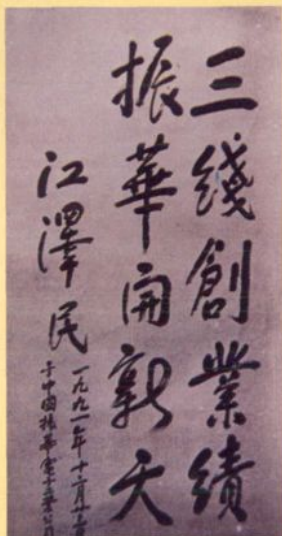 三綫創業績
振華開新天
江澤民
一九九一年十一月廿三日
于中國振華電子集團公司